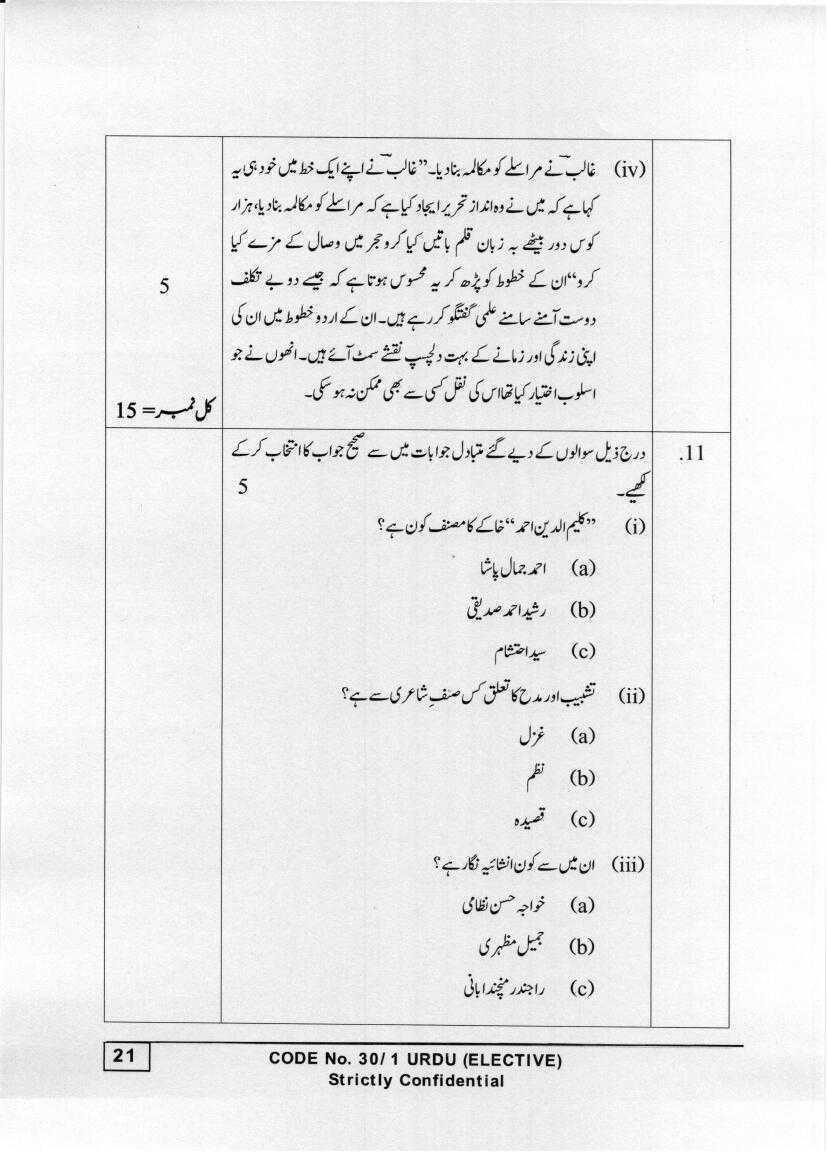 (iv) غالبؔ نے مراسلے کو مکالمہ بنادیا۔ ”غالبؔ نے اپنے ایک خط میں خود ہی یہ
کہا ہے کہ میں نے وہ انداز تحریر ایجاد کیا ہے کہ مراسلے کو مکالمہ بنادیا، ہزار
کوس دور بیٹھے بہ زبان قلم باتیں کیا کرو ہجر میں وصال کے مزے کیا
کرو“ ان کے خطوط کو پڑھ کر یہ محسوس ہوتا ہے کہ جیسے دو بے تکلف
5
دوست آمنے سامنے علمی گفتگو کر رہے ہیں۔ ان کے اردو خطوط میں ان کی
اپنی زندگی اور زمانے کے بہت دلچسپ نقشے سمٹ آئے ہیں۔ انھوں نے جو
اسلوب اختیار کیا تھا اس کی نقل کسی سے بھی ممکن نہ ہو سکی۔
کل نمبر = 15
11. درج ذیل سوالوں کے دیے گئے متبادل جوابات میں سے صحیح جواب کا انتخاب کر کے
لکھیے۔ 5
(i) ”کلیم الدین احمد“ خاکے کا مصنف کون ہے؟
(a) احمد جمال پاشا
(b) رشید احمد صدیقی
(c) سید احتشام
(ii) تشبیب اور مدح کا تعلق کس صنفِ شاعری سے ہے؟
(a) غزل
(b) نظم
(c) قصیدہ
(iii) ان میں سے کون انشائیہ نگار ہے؟
(a) خواجہ حسن نظامی
(b) جمیل مظہری
(c) راجندر منچندا بانی
21
CODE No. 30/1 URDU (ELECTIVE)
Strictly Confidential